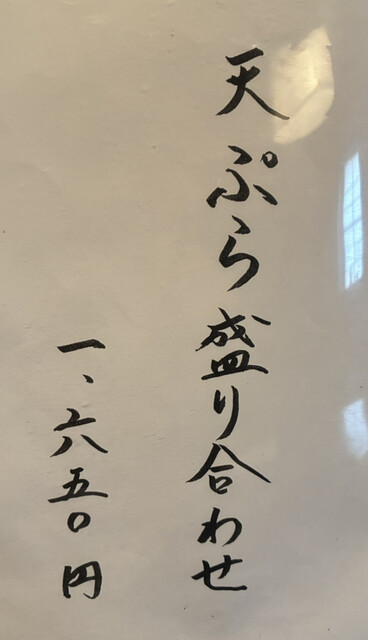 天ぷら盛り合わせ
一、六五〇円